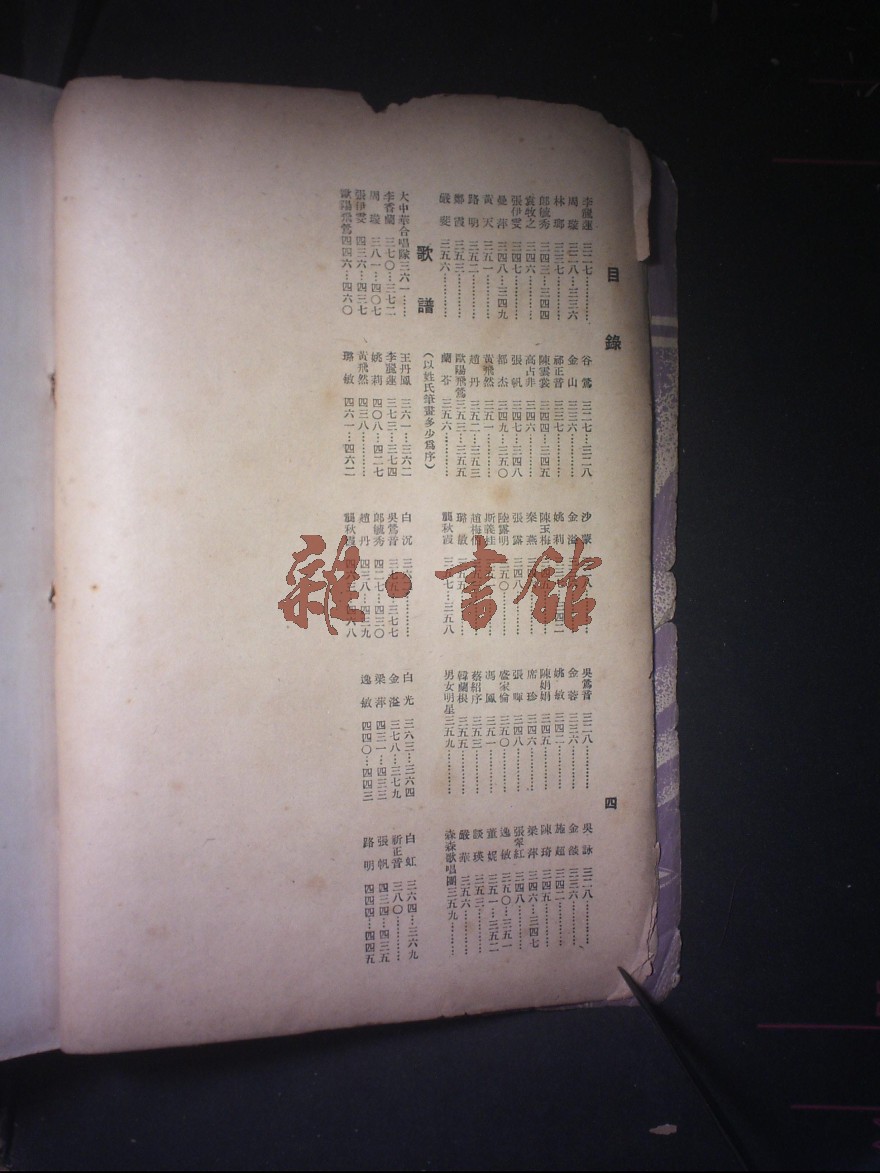 目錄 四
李麗蓮 三二七………… 谷鶯 三二七…三二八 沙蒙 吳鶯音 三二八………… 吳詠 三二八…………
周璇 三二八…三三六 金山 三三六………… 金溢 金蓉 三三六………… 金燄 三三六…………
林瑯 三三七………… 祁正音 三三七………… 姚莉 三四二 姚敏 三四二………… 施超 三四二…………
郎毓秀 三四三…三四四 陳雲裳 三四四…三四五 陳玉梅 陳娟娟 三四五………… 陳琦 三四五…………
袁牧之 三四六………… 高占非 三四六………… 秦燕 席珍 三四六………… 梁萍 三四六…三四七
張伊雯 三四七………… 張帆 三四七…三四八 張露 三四八 張暉 三四八………… 張翠紅 三四八…………
曼萍 三四八…三四九 都杰 三四九…三五〇 陸露明 五〇………… 盛家倫 三五〇………… 逸敏 三五〇…三五一
黃天 三五一………… 黃飛然 三五一………… 斯義桂 馮鳳 三五一………… 董妮 三五一…三五二
路明 三五二………… 趙丹 三五二…三五三 趙梅伯 蔡紹序 三五三………… 談瑛 三五三…………
鄭霞 三五三………… 歐陽飛鶯 三五三…三五五 璐敏 三五五 韓蘭根 三五五………… 嚴華 三五六…………
嚴斐 三五六………… 蘭苓 三五六………… 龔秋霞 三五七…三五八 男女明星 三五九………… 森森歌唱團 三五九…………
歌譜 （以姓氏筆畫多少爲序）
大中華合唱隊 三六一…… 王丹鳳 三六一…三六二 白沉 白光 三六三…三六四 白虹 三六四…三六九
李香蘭 三七〇…三七二 李麗蓮 三七三…三七四 吳鶯音 三七七 金溢 三七八…三七九 祈正音 三八〇…………
周璇 三八一…四〇七 姚莉 四〇八…四二七 郎毓秀 四二七…四三〇 梁萍 四三一…四三三 張帆 四三四…四三五
張伊雯 四三六…四三七 黃飛然 四三八………… 趙丹 四三八…四三九 逸敏 四四〇…四四三 路明 四四四…四四五
歐陽飛鶯 四四六…四六〇 璐敏 四六一…四六二 龔秋霞
雜·書館